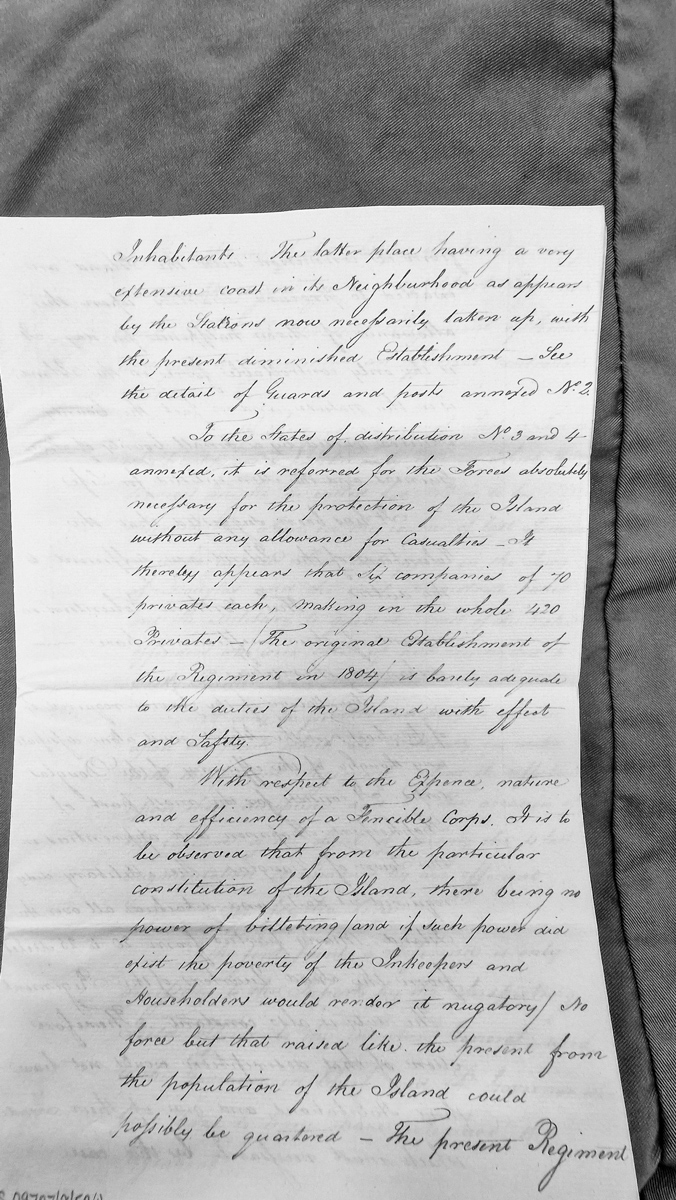 Inhabitants. The latter place having a very
extensive coast in its Neighburhood as appears
by the Stations now necessarily taken up, with
the present diminished Establishment — See
the detail of Guards and posts annexed No. 2.
To the States of distribution No. 3 and 4
annexed, it is referred for the Forces absolutely
necessary for the protection of the Island
without any allowance for Casualties — It
thereby appears that Six companies of 70
privates each, making in the whole 420
Privates — (The original Establishment of
the Regiment in 1804) is barely adequate
to the duties of the Island with effect
and Safety.
With respect to the Expence, nature
and efficiency of a Fencible Corps. It is to
be observed that from the particular
constitution of the Island, there being no
power of billeting (and if such power did
exist the poverty of the Inkeepers and
Householders would render it nugatory) No
force but that raised like the present from
the population of the Island could
possibly be quartered — The present Regiment